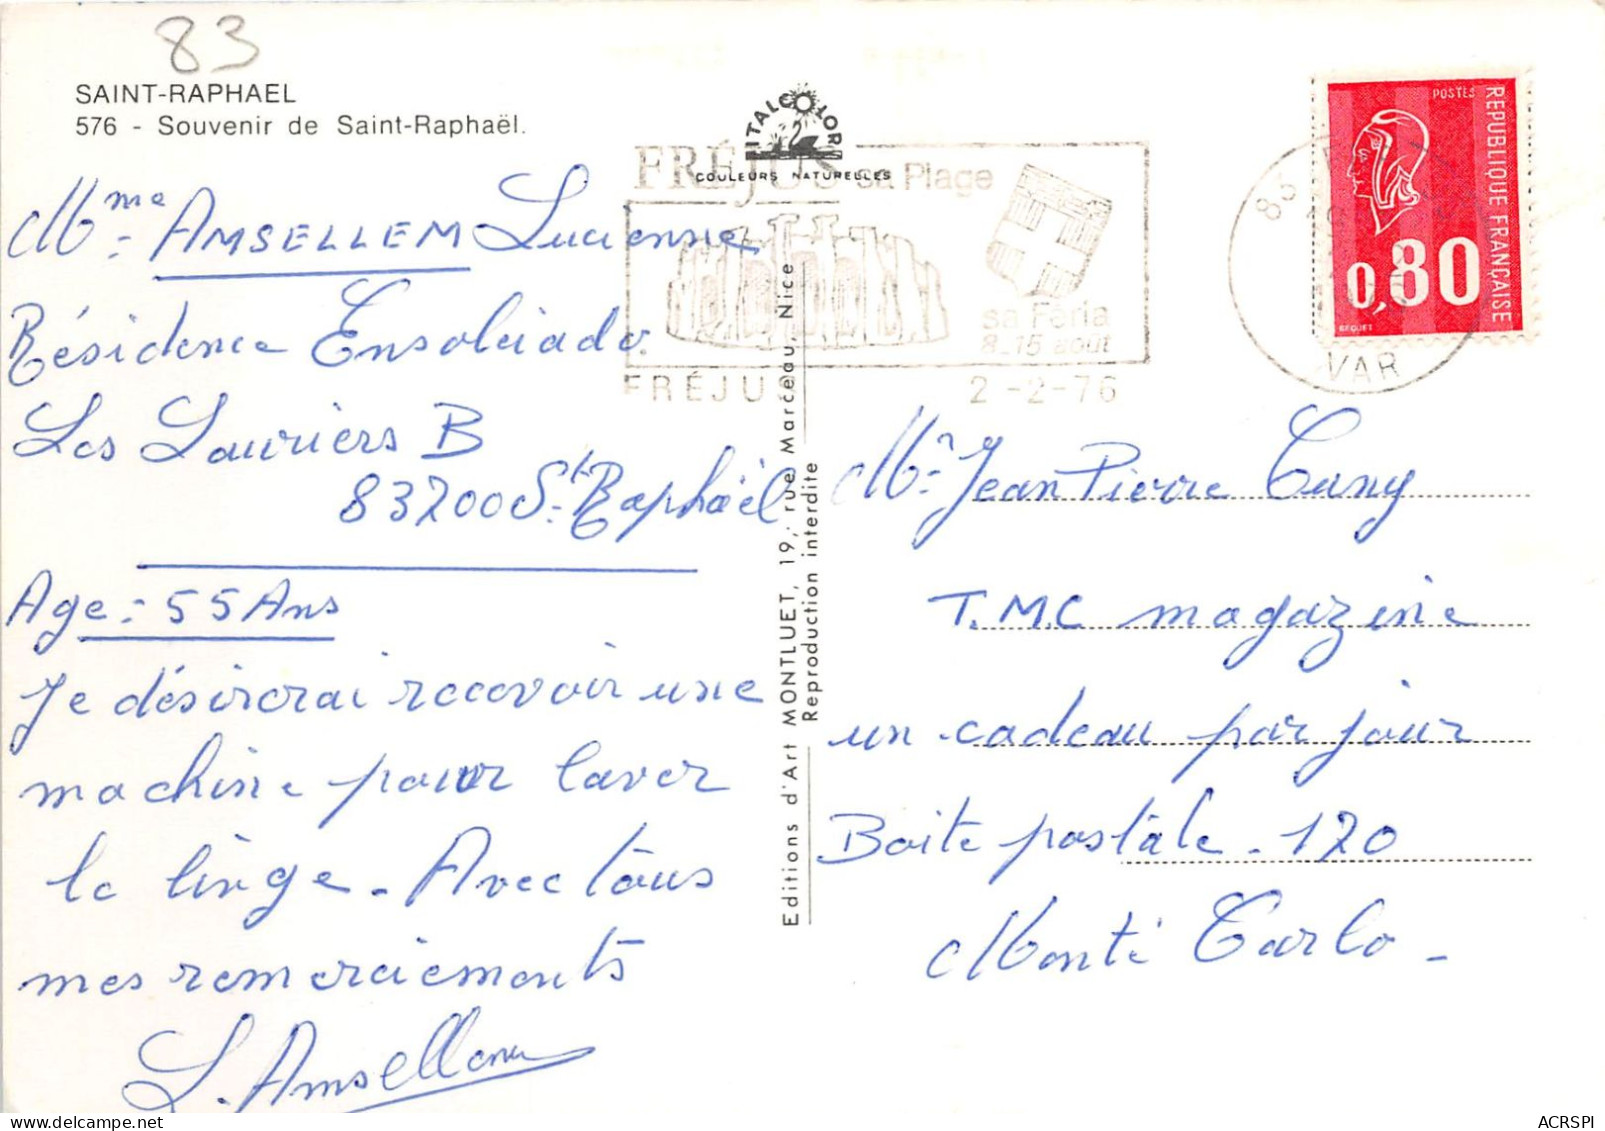 83
SAINT-RAPHAEL
576 - Souvenir de Saint-Raphaël.
ITALCOLOR
COULEURS NATURELLES
FRÉJUS sa Plage
sa Féria
8_15 août
FRÉJUS 2-2-76
83
VAR
POSTES
REPUBLIQUE FRANÇAISE
0,80
BEQUET
Mme AMSELLEM Lucienne
Résidence Ensoleiado.
Les Lauriers B
83700 St. Raphaël
Age: 55 Ans
Je désirerai recevoir une
machine pour laver
le linge. Avec tous
mes remerciements
L. Amsellem
Editions d'Art MONTLUET, 19, rue Marceau, Nice
Reproduction interdite
Mr. Jean Pierre Cuny
T.M.C magazine
un cadeau par jour
Boite postale. 120
Monté Carlo -
ACRSPI